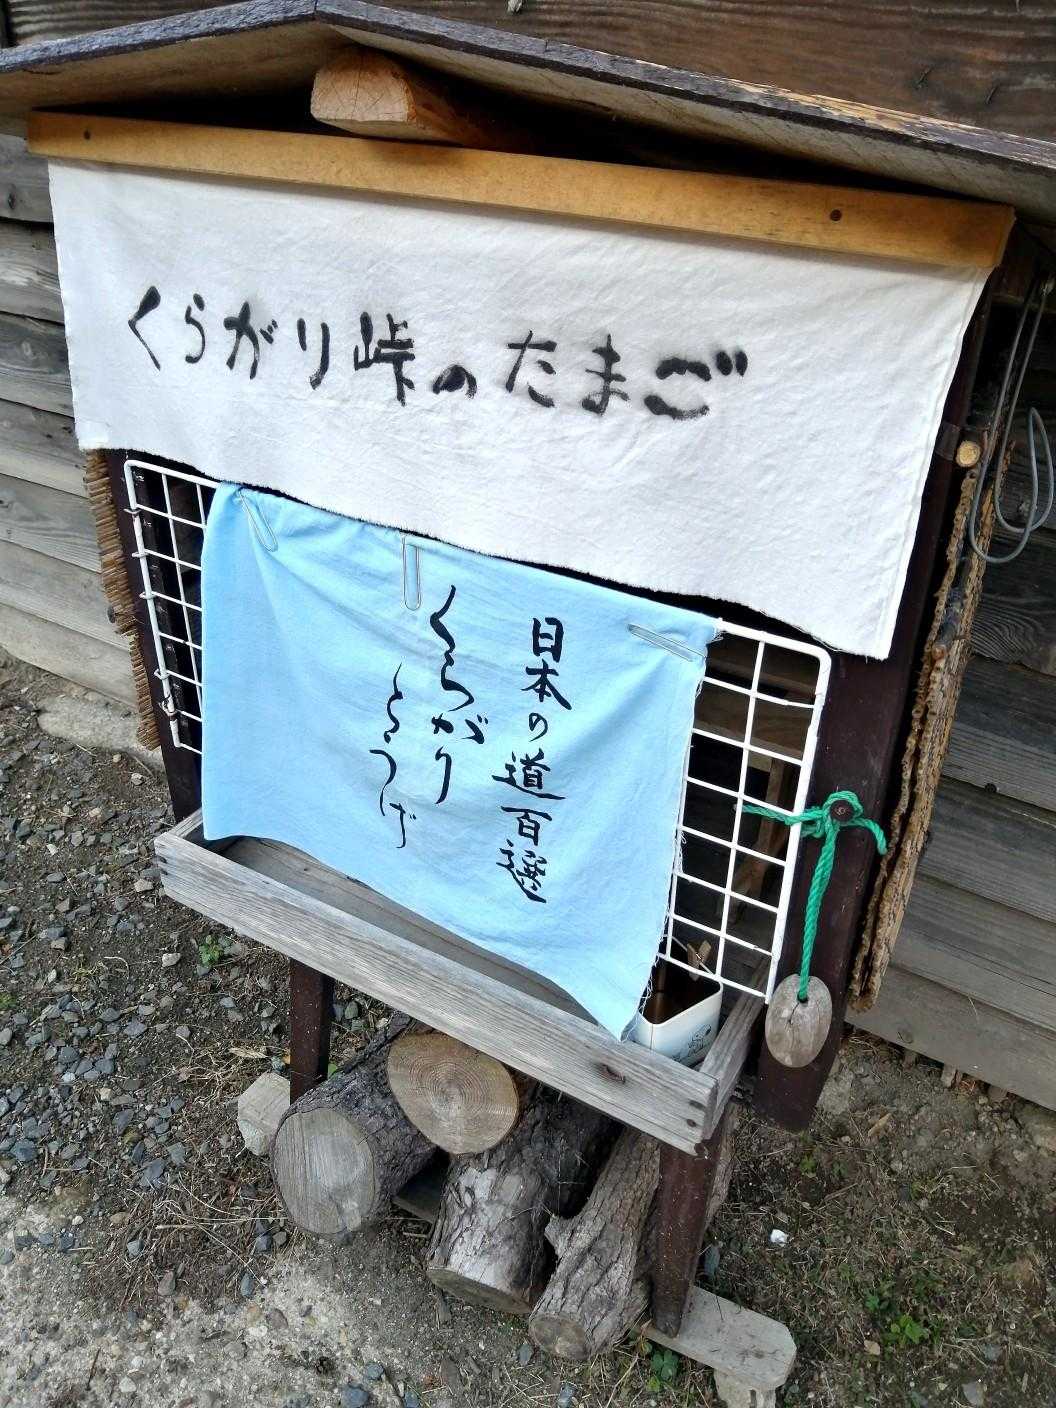 くらがり峠のたまご
日本の道百選
くらがり
とうげ